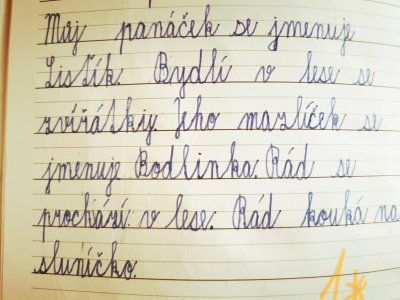 Můj panáček se jmenuje
Lístík. Bydlí v lese se
zvířátky. Jeho mazlíček se
jmenuje Bodlinka. Rád se
prochází v lese. Rád kouká na
sluníčko.
1*